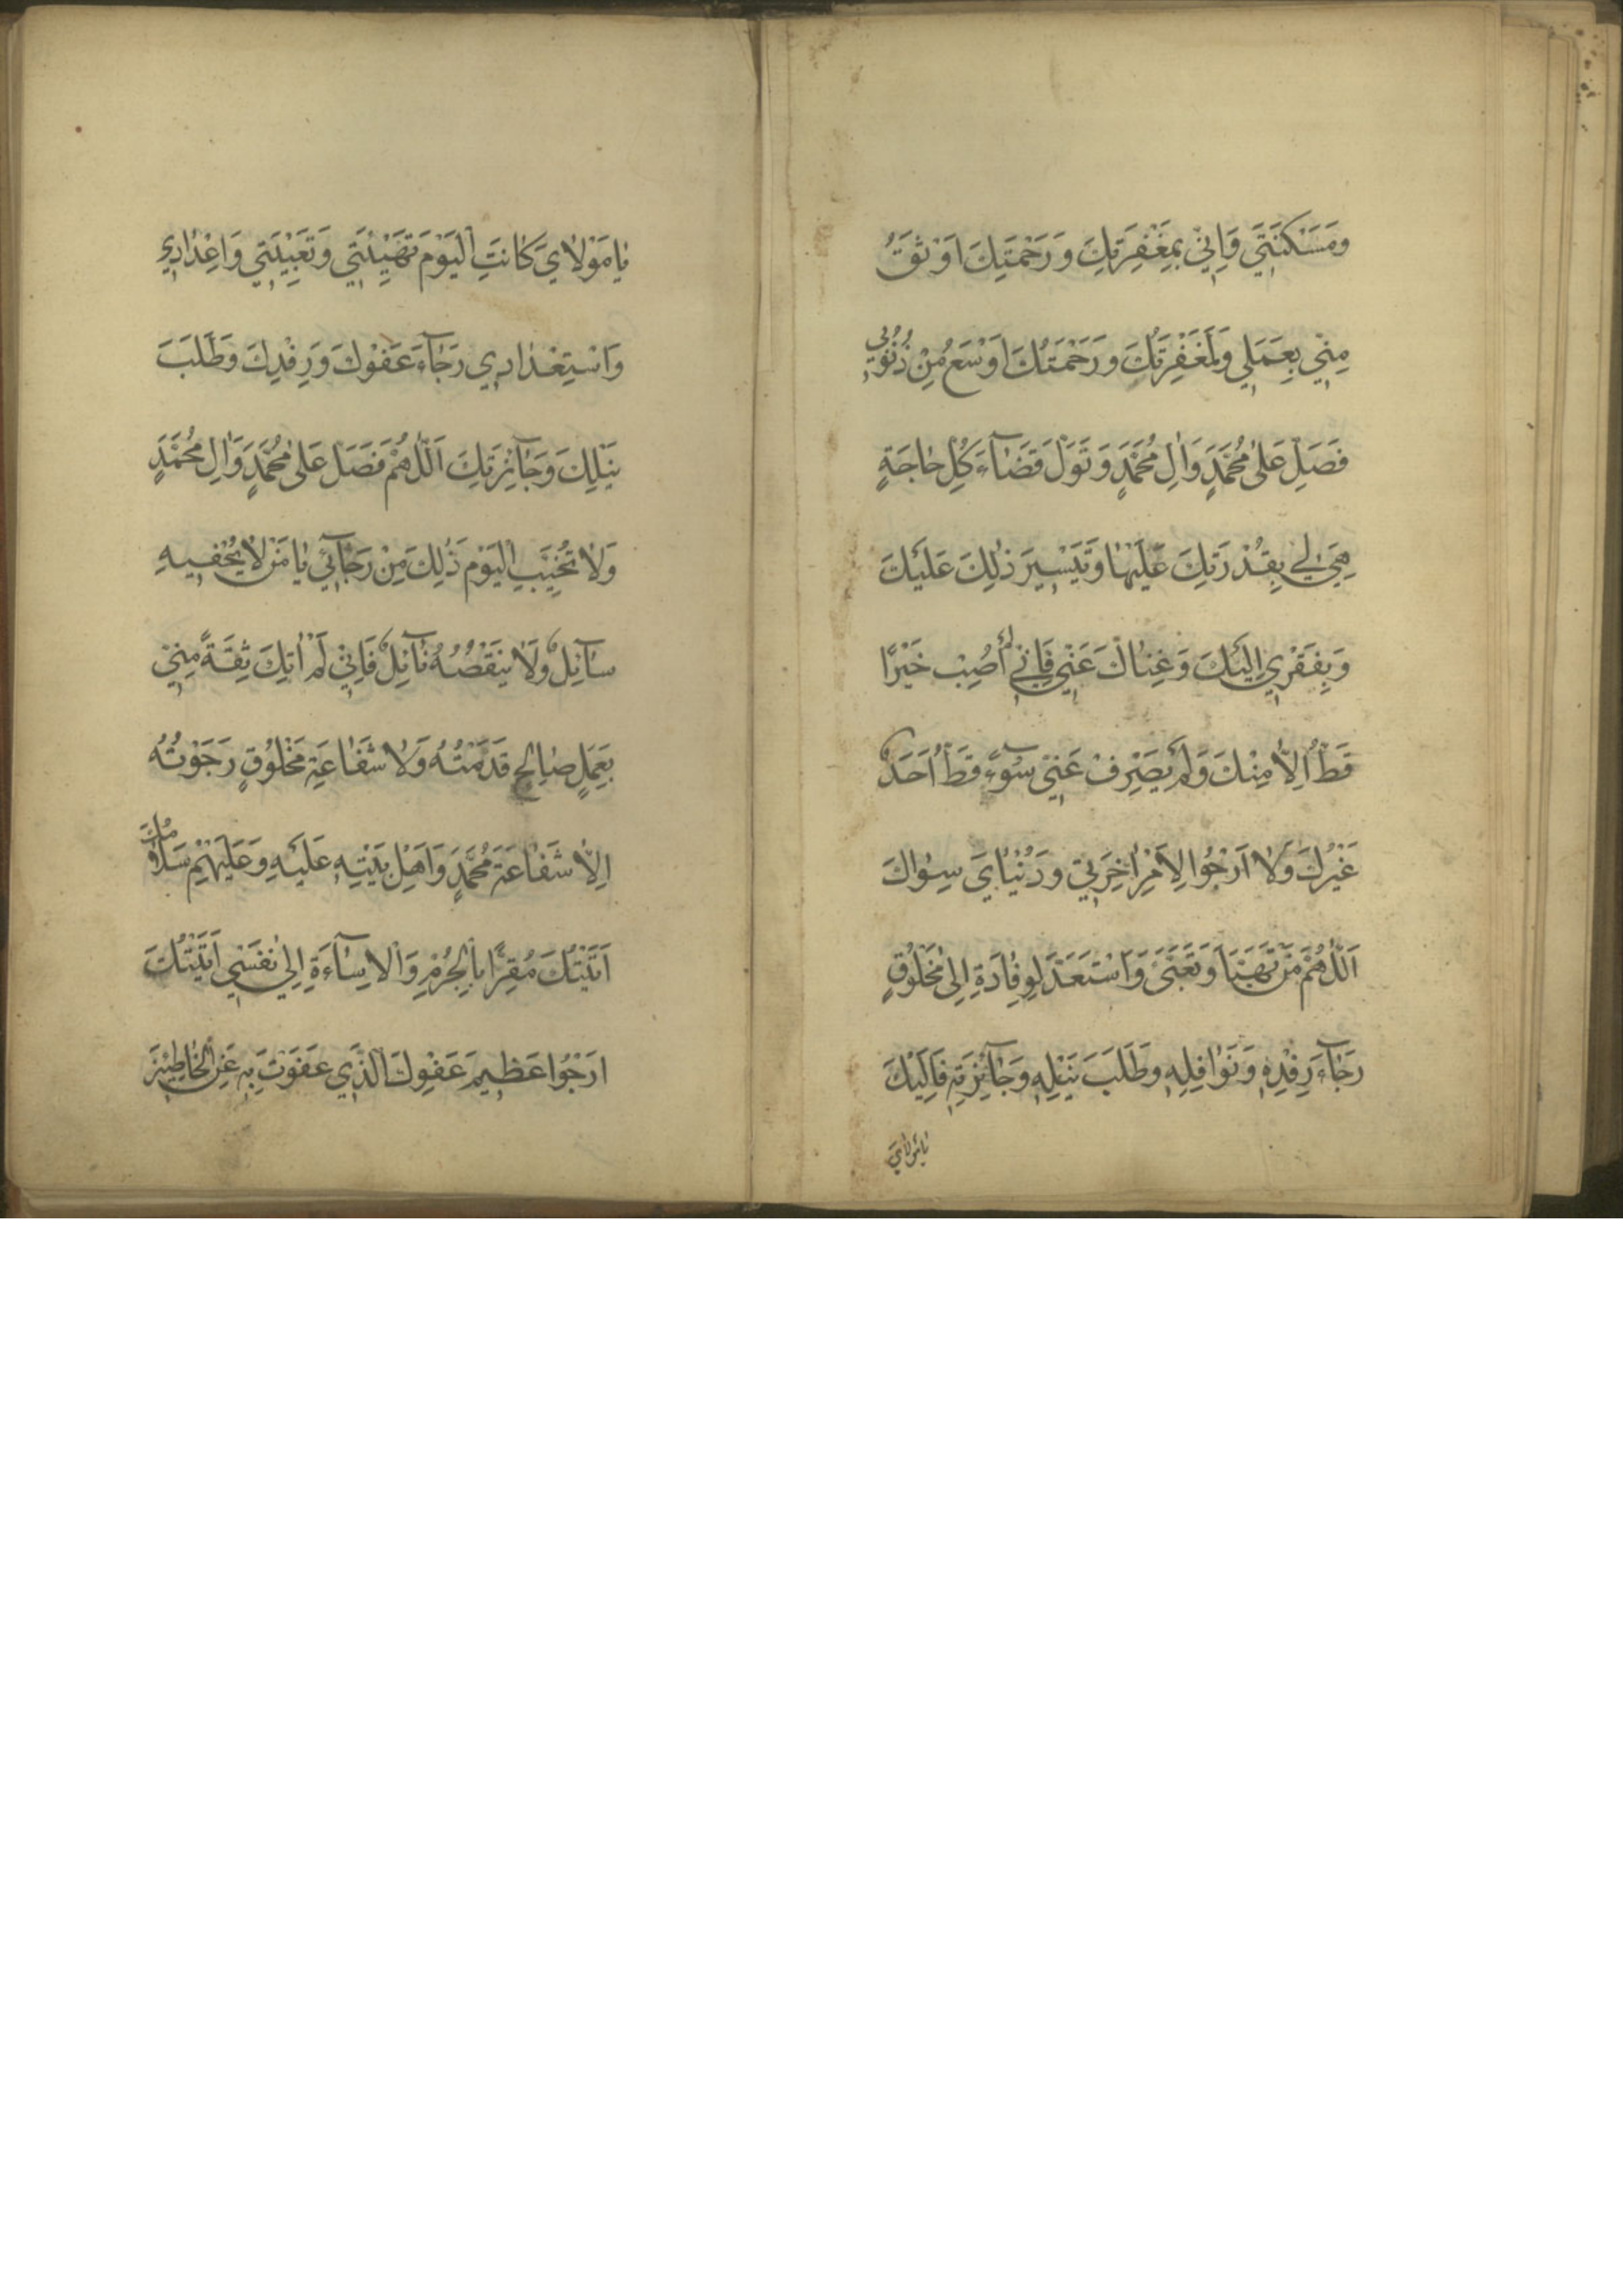 وَمَسْكَنَتِي وَاِنِّي بِمَغْفِرَتِكَ وَرَحْمَتِكَ اَوْثَقُ
مِنِّي بِعَمَلِي وَلَمَغْفِرَتُكَ وَرَحْمَتُكَ اَوْسَعُ مِنْ ذُنُوبِي
فَصَلِّ عَلىٰ مُحَمَّدٍ وَاٰلِ مُحَمَّدٍ وَتَوَلَّ قَضَآءَ كُلِّ حٰاجَةٍ
هِيَ لِي بِقُدْرَتِكَ عَلَيْهٰا وَتَيْسِيرِ ذٰلِكَ عَلَيْكَ
وَبِفَقْرِي اِلَيْكَ وَغِنٰاكَ عَنِّي فَاِنِّي لَمْ اُصِبْ خَيْرًا
قَطُّ اِلاّٰ مِنْكَ وَلَمْ يَصْرِفْ عَنِّي سُوۤءً قَطُّ اَحَدٌ
غَيْرُكَ وَلاٰ اَرْجُوا لِاَمْرِ اٰخِرَتِي وَدُنْيٰايَ سِوٰاكَ
اَللّٰهُمَّ مَنْ تَهَيَّأَ وَتَعَبَّئَ وَاسْتَعَدَّ لِوِفٰادَةٍ اِلىٰ مَخْلُوقٍ
رَجٰآءَ رِفْدِهِ وَنَوٰافِلِهِ وَطَلَبَ نَيْلِهِ وَجٰآئِزَتِهِ فَاِلَيْكَ
يٰامَوْلٰايَ
يٰامَوْلٰايَ كٰانَتِ الْيَوْمَ تَهْيِئَتِي وَتَعْبِيَتِي وَاِعْدٰادِي
وَاسْتِعْدٰادِي رَجٰآءَ عَفْوِكَ وَرِفْدِكَ وَطَلَبَ
نَيْلِكَ وَجٰآئِزَتِكَ اَللّٰهُمَّ فَصَلِّ عَلىٰ مُحَمَّدٍ وَاٰلِ مُحَمَّدٍ
وَلاٰ تُخَيِّبِ الْيَوْمَ ذٰلِكَ مِنْ رَجٰآئِي يٰا مَنْ لاٰ يُحْفِيهِ
سٰآئِلٌ وَلاٰ يَنْقُصُهُ نٰآئِلٌ فَاِنِّي لَمْ اٰتِكَ ثِقَةً مِنِّي
بِعَمَلٍ صٰالِحٍ قَدَّمْتُهُ وَلاٰ شَفٰاعَةِ مَخْلُوقٍ رَجَوْتُهُ
اِلاّٰ شَفٰاعَةَ مُحَمَّدٍ وَاَهْلِ بَيْتِهِ عَلَيْهِ وَعَلَيْهِمْ سَلاٰمُكَ
اَتَيْتُكَ مُقِرًّا بِالْجُرْمِ وَالْاِسٰآءَةِ اِلىٰ نَفْسِي اَتَيْتُكَ
اَرْجُوا عَظِيمَ عَفْوِكَ الَّذِي عَفَوْتَ بِهِ عَنِ الْخٰاطِئِينَ